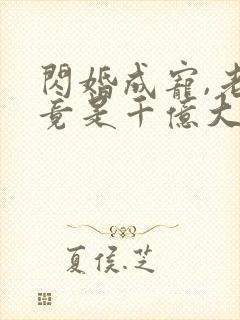 閃婚成寵,老
竟是千億大
夏侯.芝